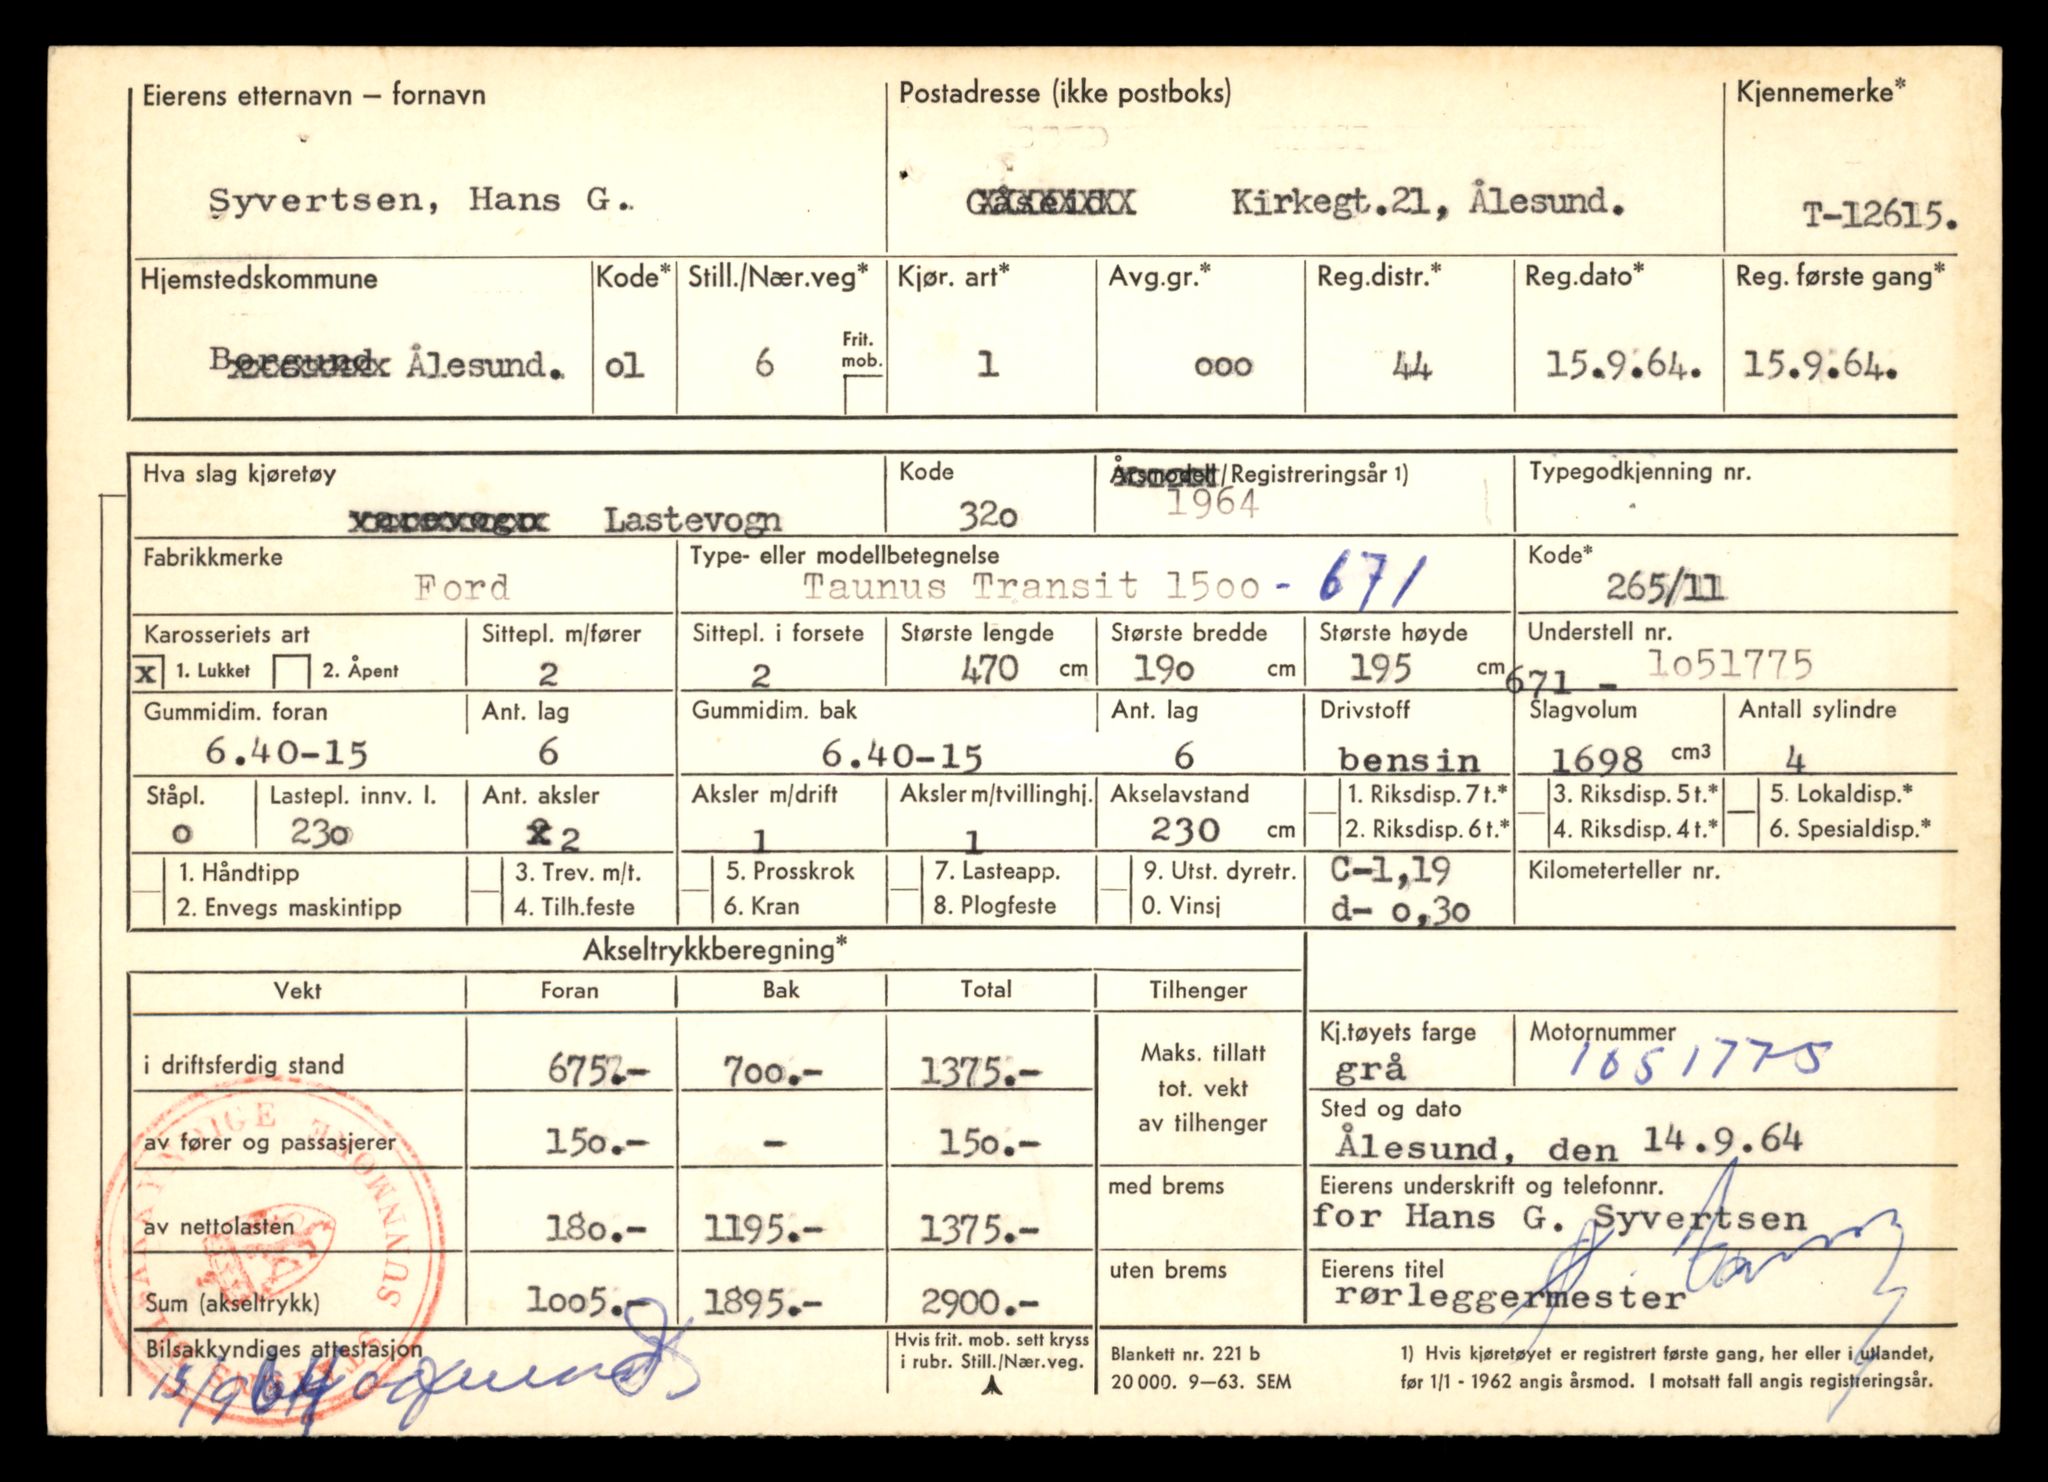 Eierens etternavn – fornavn Postadresse (ikke postboks) Kjennemerke*
Syvertsen, Hans G. Gåseid Kirkegt.21, Ålesund. T-12615.
Hjemstedskommune Kode* Still./Nær.veg* Kjør. art* Avg.gr.* Reg.distr.* Reg.dato* Reg. første gang*
Borgund Ålesund. o1 6 Frit. mob. 1 ooo 44 15.9.64. 15.9.64.
Hva slag kjøretøy Kode Årsmodell/Registreringsår 1) Typegodkjenning nr.
varevogn Lastevogn 32o 1964
Fabrikkmerke Type- eller modellbetegnelse Kode*
Ford Taunus Transit 15oo - 671 265/11
Karosseriets art Sittepl. m/fører Sittepl. i forsete Største lengde Største bredde Største høyde Understell nr.
x 1. Lukket 2. Åpent 2 2 470 cm 19o cm 195 cm 671 - 1o51775
Gummidim. foran Ant. lag Gummidim. bak Ant. lag Drivstoff Slagvolum Antall sylindre
6.40-15 6 6.40-15 6 bensin 1698 cm3 4
Ståpl. Lastepl. innv. l. Ant. aksler Aksler m/drift Aksler m/tvillinghj. Akselavstand 1. Riksdisp. 7 t.* 3. Riksdisp. 5 t.* 5. Lokaldisp.*
o 23o 2 1 1 230 cm 2. Riksdisp. 6 t.* 4. Riksdisp. 4 t.* 6. Spesialdisp.*
1. Håndtipp 3. Trev. m/t. 5. Prosskrok 7. Lasteapp. 9. Utst. dyretr. C-1,19 Kilometerteller nr.
2. Envegs maskintipp 4. Tilh.feste 6. Kran 8. Plogfeste 0. Vinsj d- o,3o
Akseltrykkberegning*
Vekt Foran Bak Total Tilhenger
Kj.tøyets farge Motornummer
i driftsferdig stand 675.- 7oo.- 1375.- Maks. tillatt tot. vekt av tilhenger grå 1051775
Sted og dato
av fører og passasjerer 15o.- - 15o.- Ålesund, den 14.9.64
med brems Eierens underskrift og telefonnr.
av nettolasten 18o.- 1195.- 1375.- for Hans G. Syvertsen
uten brems Eierens titel
Sum (akseltrykk) 1oo5.- 1895.- 2900.- rørleggermester
Bilsakkyndiges attestasjon Hvis frit. mob. sett kryss i rubr. Still./Nær.veg. Blankett nr. 221 b 1) Hvis kjøretøyet er registrert første gang, her eller i utlandet,
15/9 64 20 000. 9–63. SEM før 1/1 - 1962 angis årsmod. I motsatt fall angis registreringsår.